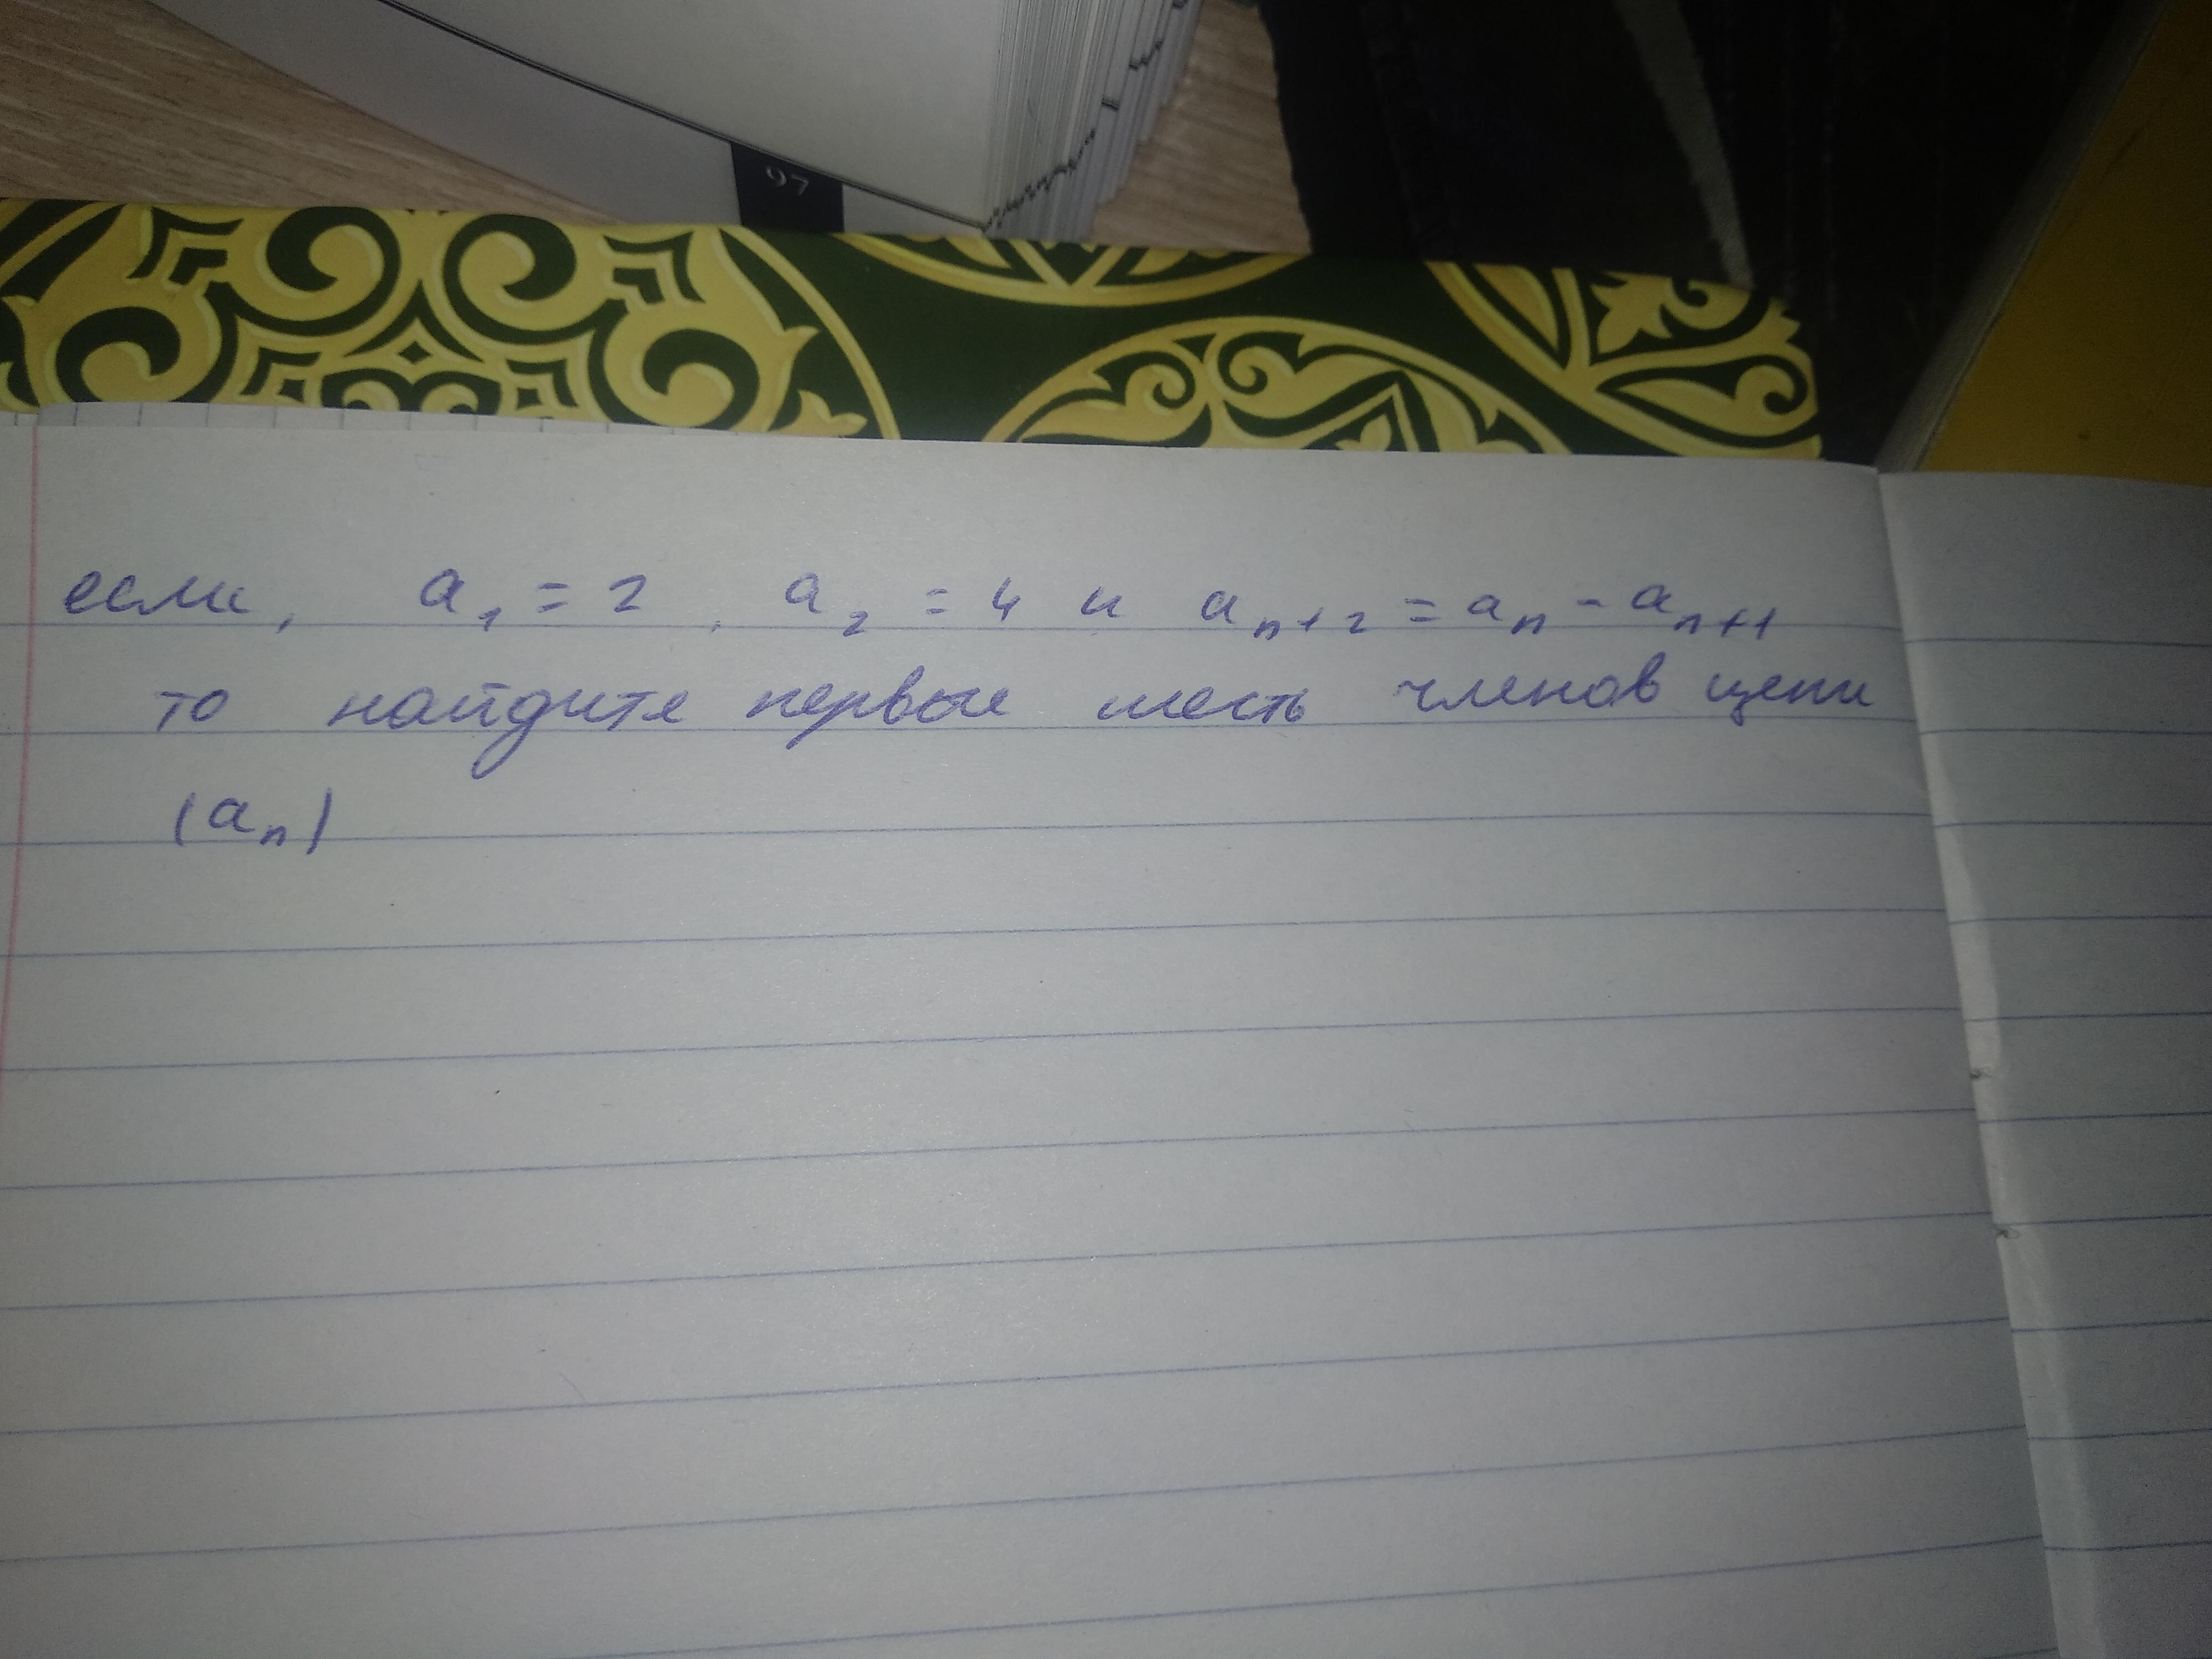 97
если, a₁ = 2, a₂ = 4 и aₙ₊₂ = aₙ - aₙ₊₁
то найдите первые шесть членов цепи
(aₙ)